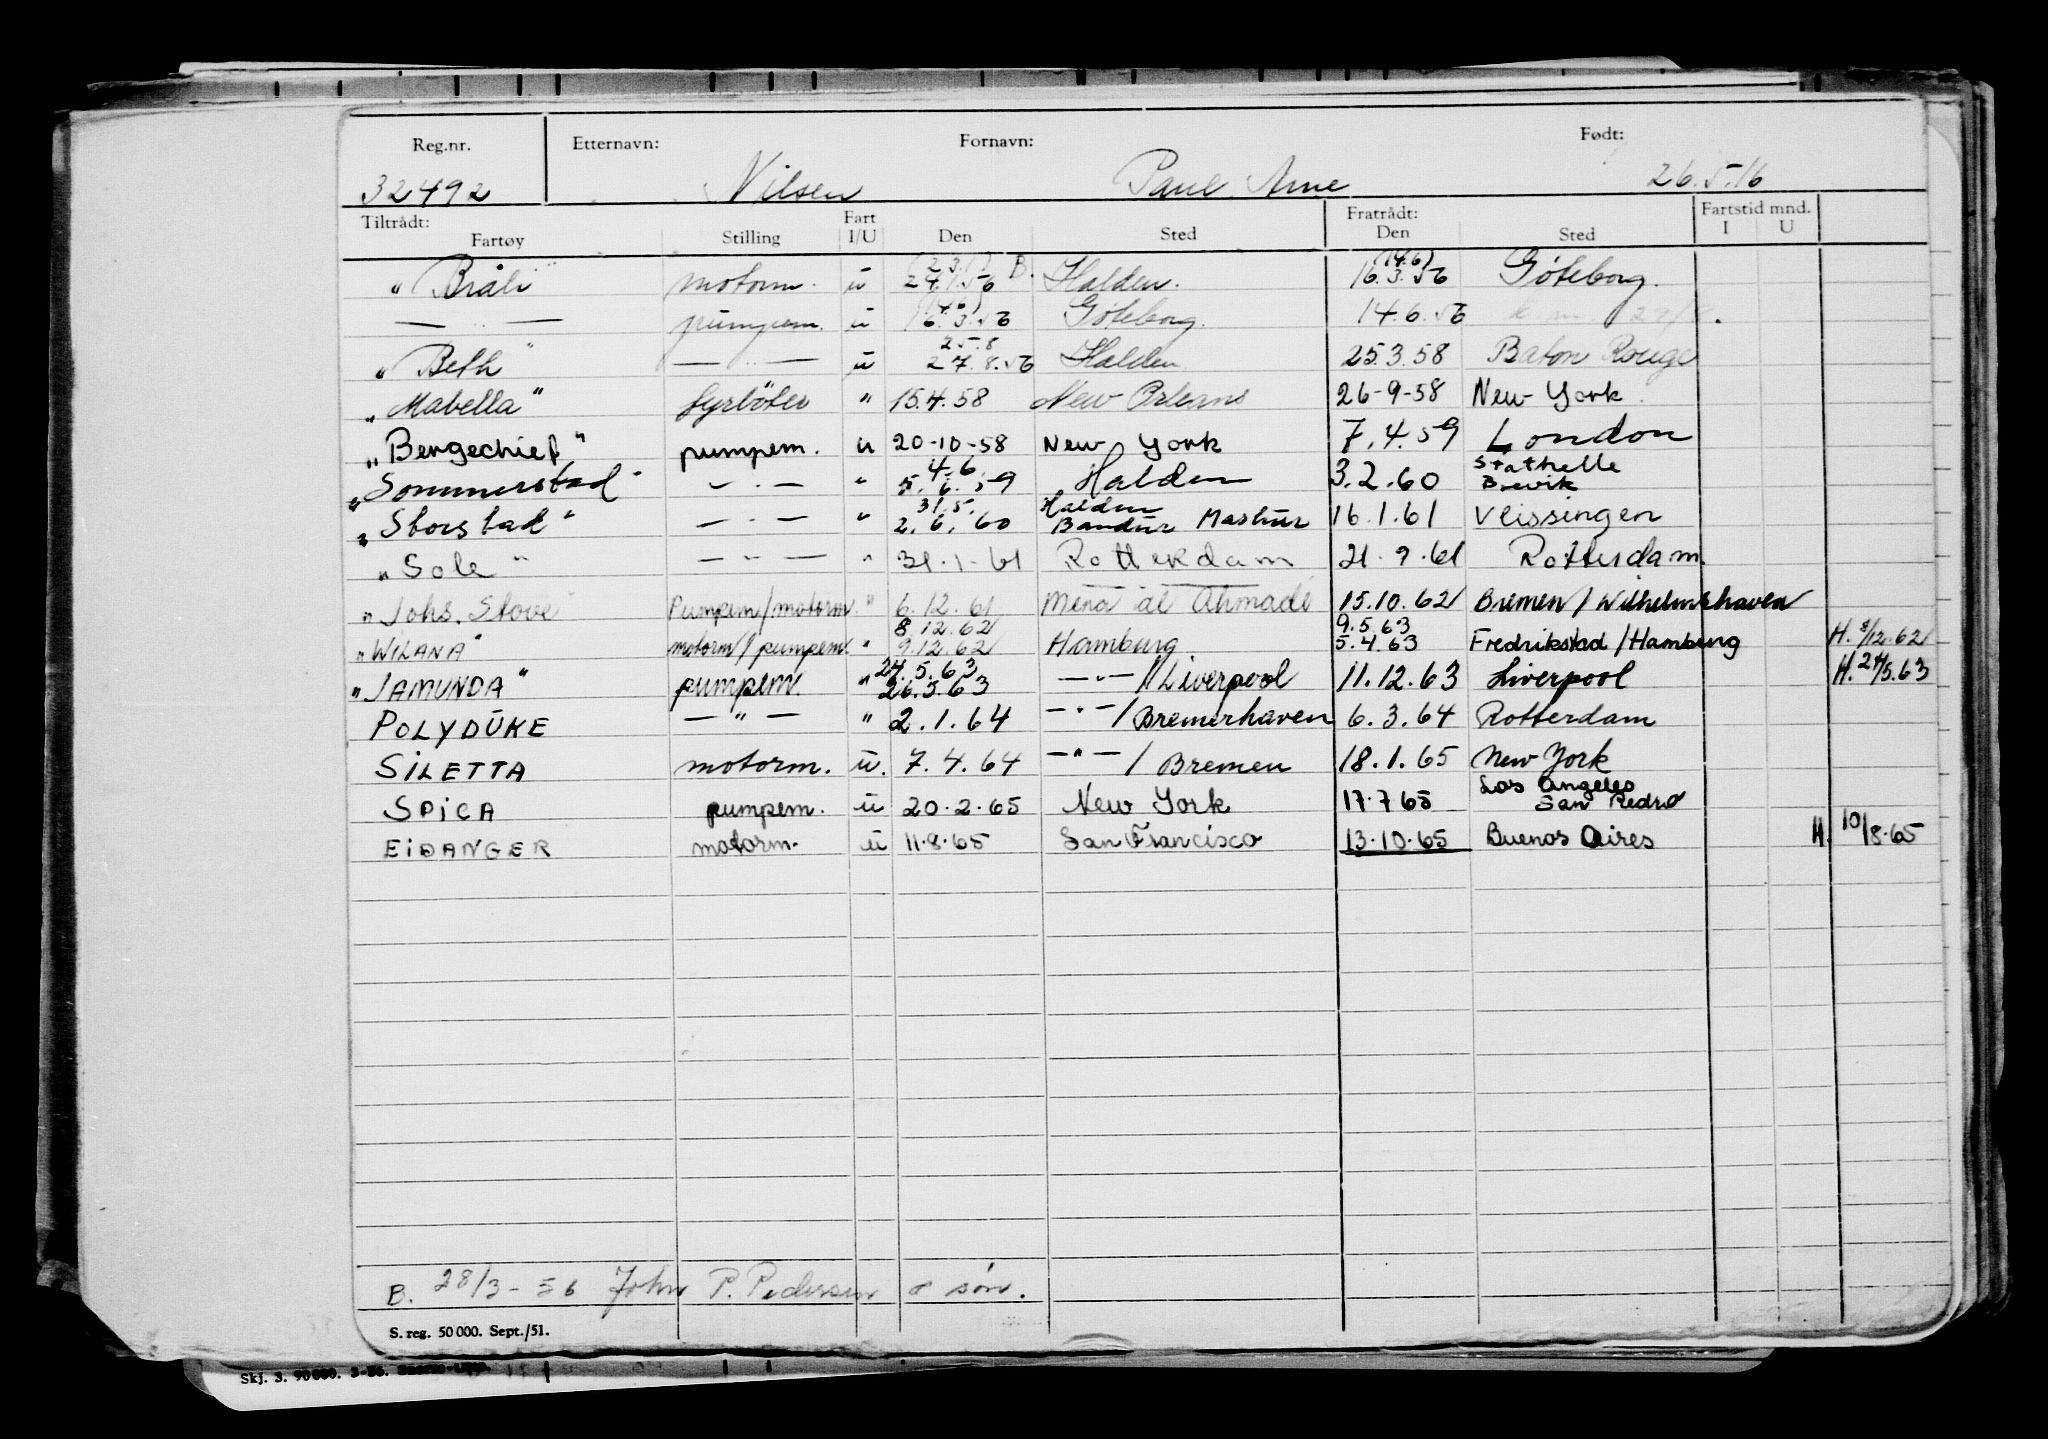 Reg.nr. Etternavn: Fornavn: Født:
32492 Nilsen Paul Arne 26.5.16
Tiltrådt: Fart Fratrådt: Fartstid mnd.
Fartøy Stilling I/U Den Sted Den Sted I U
(2.3.) B. (14.6)
" Bråli motorm. u 24.1.56 Halden. 16.3.56 Göteborg.
(14.6)
— " — pumpem. u 16.3.56 Göteborg. 14.6.56
25.8
" Beth " — " — u 27.8.56 Halden 25.3.58 Baton Rouge
" Mabella " fyrböter " 15.4.58 New Orleans 26-9-58 New York.
" Bergechief " pumpem. u 20-10-58 New York 7.4.59 London
4.6. Stathelle
" Sommerstad " — " — " 5.6.59 Halden 3.2.60 Brevik
31.5. Halden
" Storstad " — " — " 2.6.60 Bandur Mashur 16.1.61 Vlissingen
" Sole " — " — " 31.1-61 Rotterdam 21.9.61 Rotterdam.
" Johs. Stove " Pumpem/motorm. " 6.12.61 Mena al Ahmadi 15.10.62 Bremen/Wilhelmshaven
8.12.62 9.5.63
" WILANA " motorm/pumpem. " 9.12.62 Hamburg. 5.4.63 Fredrikstad/Hamburg H. 8/12.62
24.5.63
" JAMUNDA " pumpem. " 26.5.63 — " — /Liverpool 11.12.63 Liverpool H. 24/5.63
POLYDUKE — " — " 2.1.64 — " — /Bremerhaven 6.3.64 Rotterdam
SILETTA motorm. u. 7.4.64 — " — / Bremen 18.1.65 New York
Los Angeles
SPICA pumpem. u 20.2.65 New York 17.7 65 San Pedro
EIDANGER motorm. u 11.8.65 San Francisco 13.10.65 Buenos Aires H. 10/8.65
B. 28/3-56 John P. Pedersen & søn.
S. reg. 50 000. Sept./51.
Skj. 3. 90 000. 3-56.